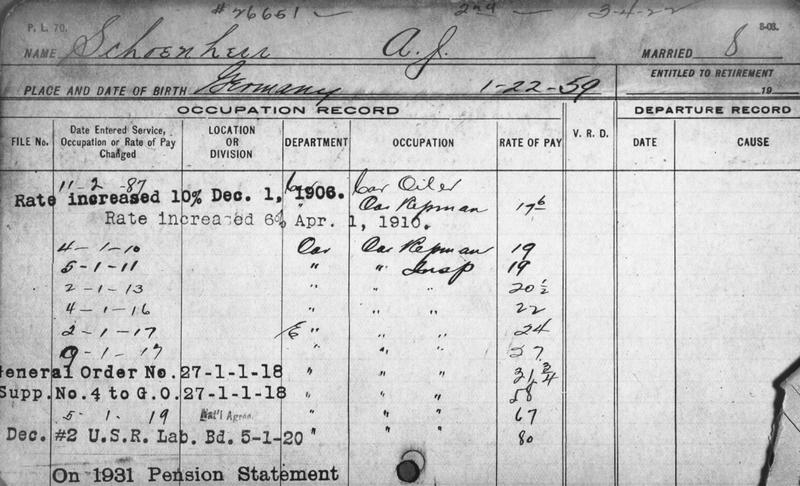 #26651 - 2nd - 3-4-22
P. L. 70. 5-03.
NAME Schoenherr A. J. MARRIED 8
PLACE AND DATE OF BIRTH Germany 1-22-59 ENTITLED TO RETIREMENT 19
OCCUPATION RECORD DEPARTURE RECORD
FILE No. Date Entered Service, Occupation or Rate of Pay Changed LOCATION OR DIVISION DEPARTMENT OCCUPATION RATE OF PAY V. R. D. DATE CAUSE
11-2-87 Car Car Oiler
Rate increased 10% Dec. 1, 1906. " Car Repman 17 6
Rate increased 6% Apr. 1, 1910.
4-1-10 Car Car Repman 19
5-1-11 " " Insp 19
2-1-13 " " " 20 1/2
4-1-16 " " " 22
2-1-17 " " " 24
9-1-17 " " " 27
General Order No. 27-1-1-18 " " " 31 3/4
Supp. No. 4 to G.O. 27-1-1-18 " " " 58
5-1-19 Nat'l Agree. " " " 67
Dec. #2 U.S.R. Lab. Bd. 5-1-20 " " " 80
On 1931 Pension Statement